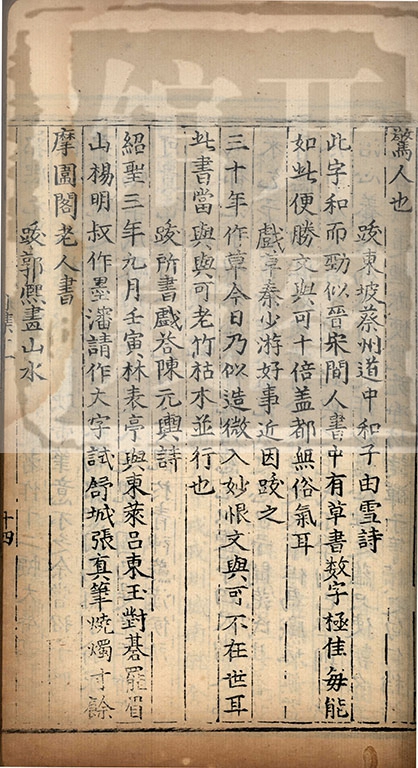 驚人也
跋東坡蔡州道中和子由雪詩
此字和而勁似晉宋間人書中有草書數字極佳每能
如此便勝文與可十倍盖都無俗氣耳
戲草秦少游好事近因跋之
三十年作草今日乃似造微入妙恨文與可不在世耳
此書當與與可老竹枯木並行也
跋所書戲答陳元輿詩
紹聖三年九月壬寅林表亭與東萊吕東玉對碁罷眉
山楊明叔作墨瀋請作大字試舒城張真筆燒燭寸餘
摩圍閣老人書
跋郭熈畫山水
十四